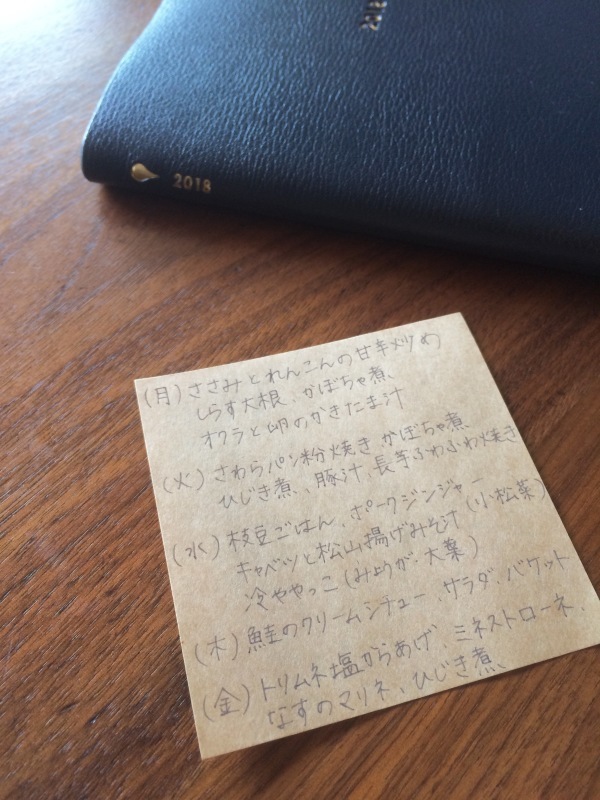 2018
(月) ささみとれんこんの甘辛炒め
しらす大根、かぼちゃ煮
オクラと卵のかきたま汁
(火) さわらパン粉焼き、かぼちゃ煮
ひじき煮、豚汁、長芋ふわふわ焼き
(水) 枝豆ごはん、ポークジンジャー
キャベツと松山揚げみそ汁 (小松菜)
冷ややっこ (みょうが・大葉)
(木) 鮭のクリームシチュー、サラダ、バケット
(金) トリムネ塩からあげ、ミネストローネ、
なすのマリネ、ひじき煮